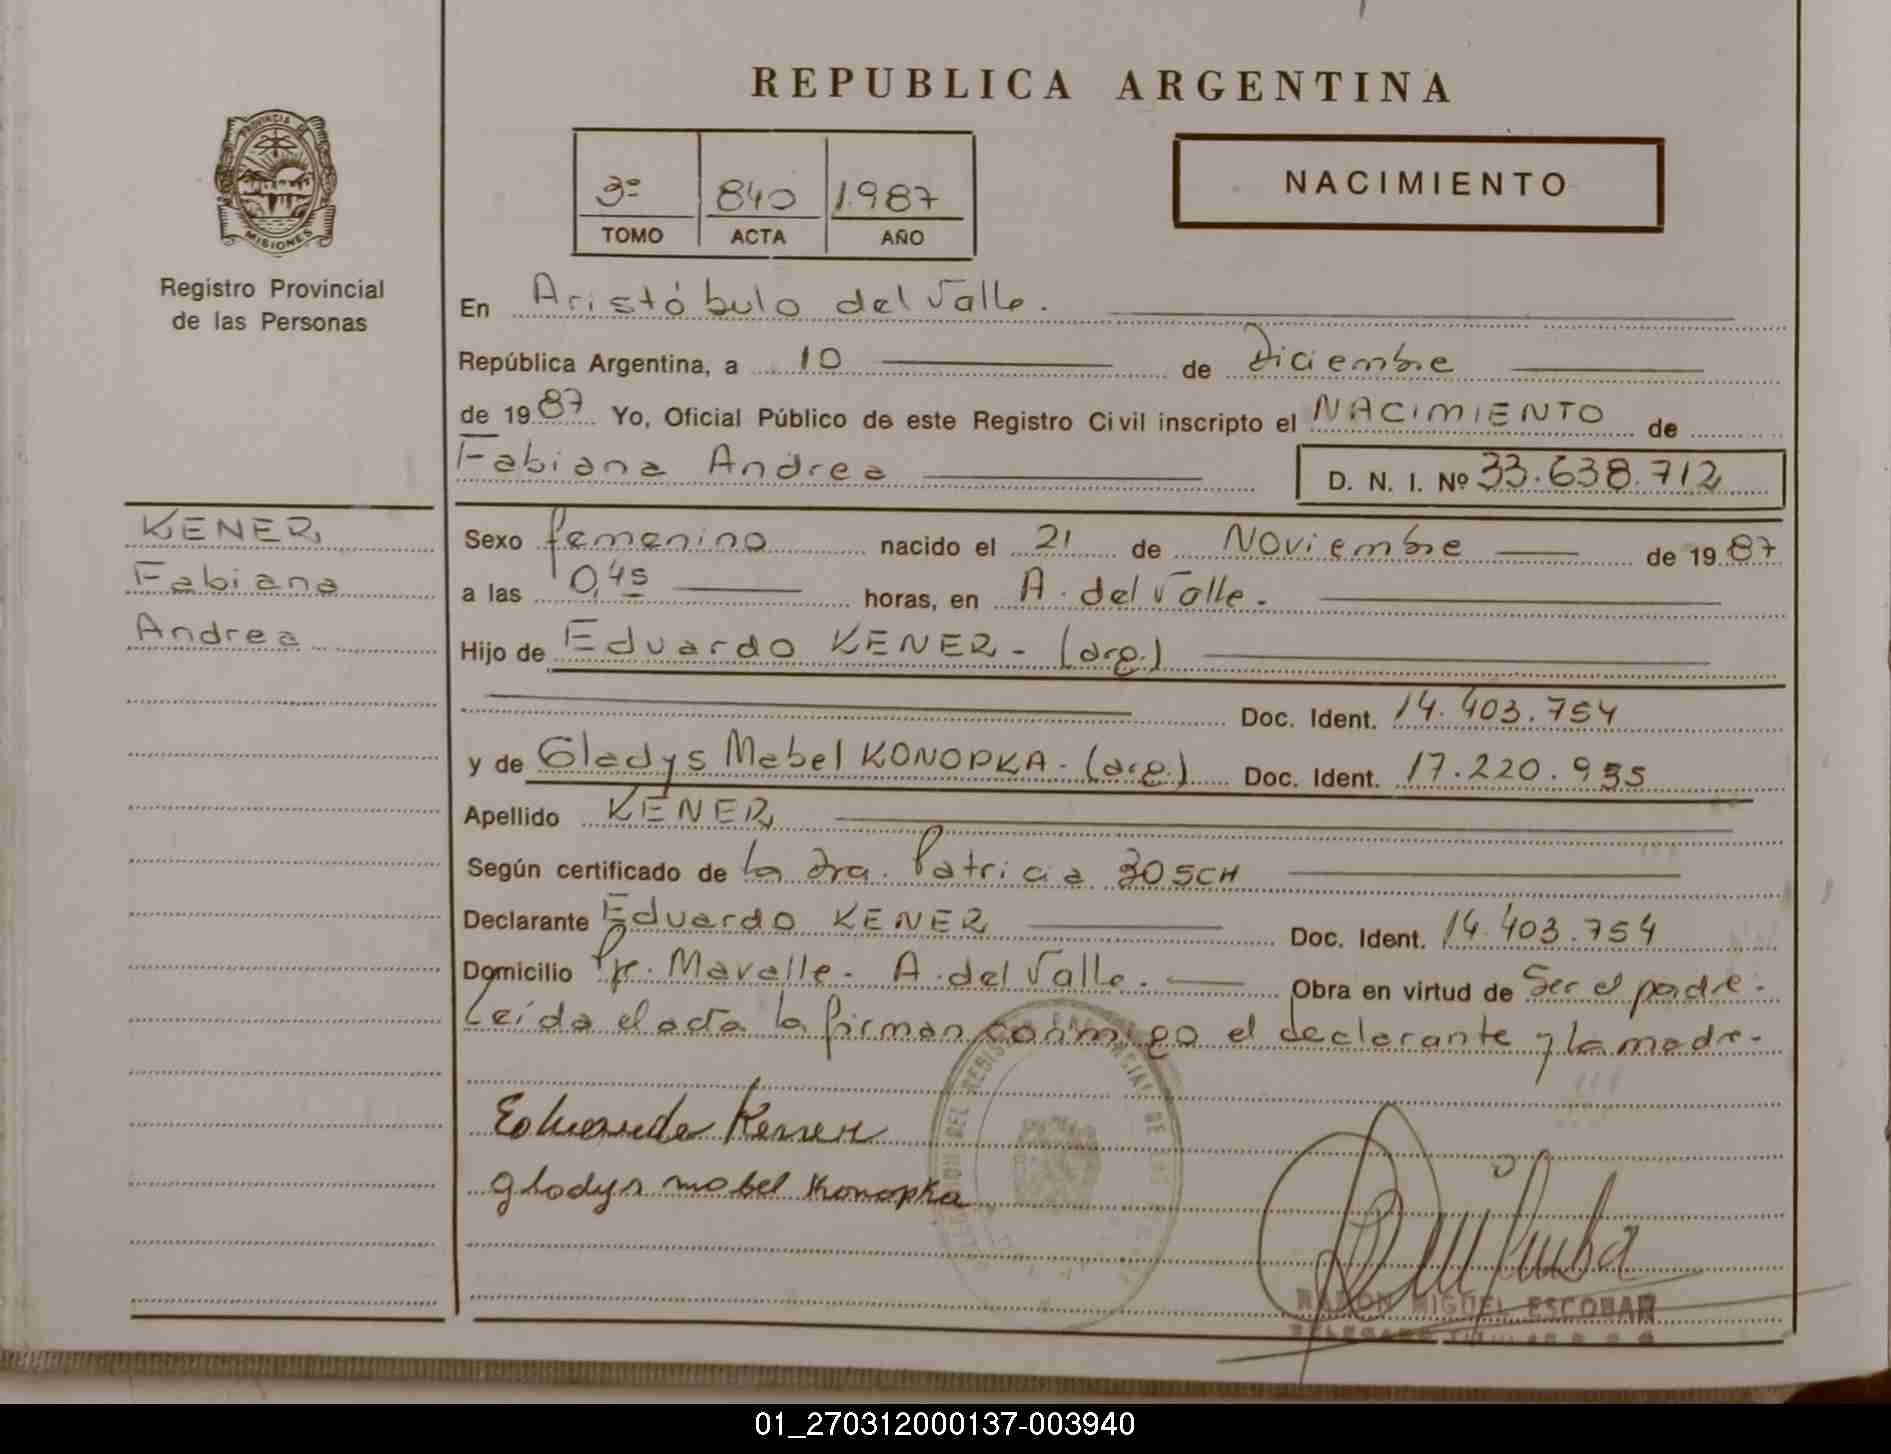 REPUBLICA ARGENTINA
PROVINCIA DE
MISIONES
Registro Provincial
de las Personas
3º 840 1.987
TOMO ACTA AÑO
NACIMIENTO
En Aristóbulo del Valle.
República Argentina, a 10 de Diciembre
de 1987 Yo, Oficial Público de este Registro Civil inscripto el NACIMIENTO de
Fabiana Andrea D. N. I. Nº 33.638.712
KENER
Fabiana
Andrea
Sexo femenino nacido el 21 de Noviembre de 1987
a las 0,45 horas, en A. del Valle.
Hijo de Eduardo KENER - (arg.)
Doc. Ident. 14.403.754
y de Gladys Mabel KONOPKA - (arg.) Doc. Ident. 17.220.955
Apellido KENER
Según certificado de la Dra. Patricia BOSCH
Declarante Eduardo KENER Doc. Ident. 14.403.754
Domicilio Pje. Mavalle - A. del Valle. Obra en virtud de Ser el padre.
Leída el acta la firman conmigo el declarante y la madre.
Eduardo Kener
gladys mabel Konopka
RAMON MIGUEL ESCOBAR
01_270312000137-003940